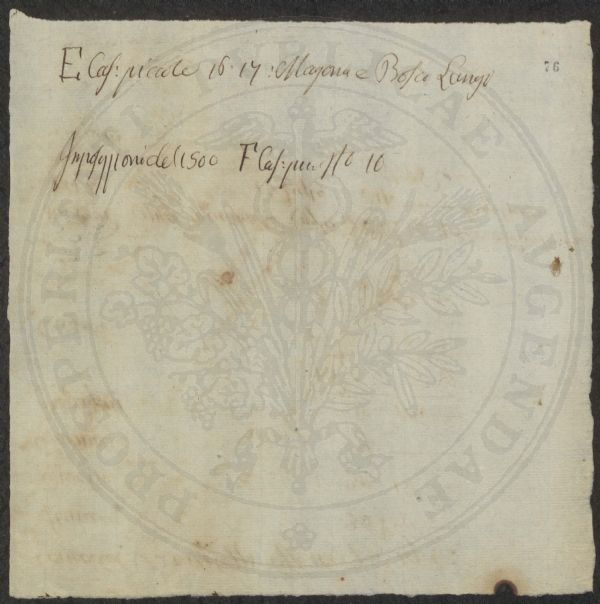 E Cas: piccole 16. 17: Magona e Bosco Lungo
76
Impressioni del 1500 F Cas: 16
PROSPERITATI PVBLICAE AVGENDAE